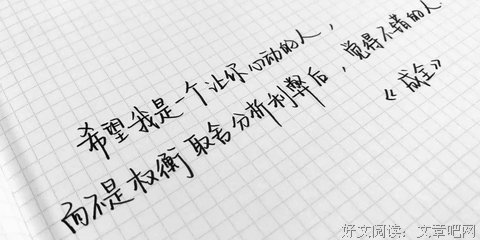 希望我是一个让你心动的人，
而不是权衡取舍分析利弊后，觉得不错的人
《成全》
好文阅读：文章吧网